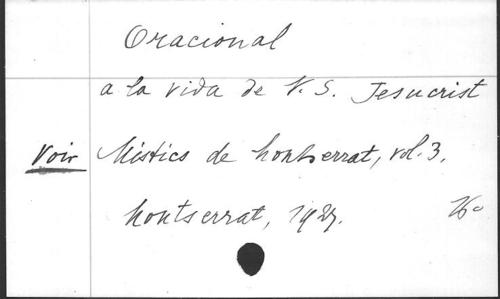 Oracional
a la vida de N. S. Jesucrist
Voir Místics de Montserrat, vol. 3.
Montserrat, 1929.